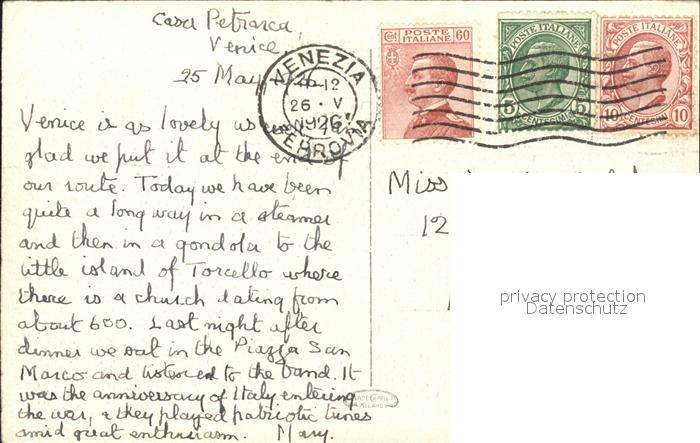 Casa Petrarca,
Venice
25 May
Venice is as lovely as
glad we put it at the end of
our route. Today we have been
quite a long way in a steamer
and then in a gondola to the
little island of Torcello where
there is a church dating from
about 600. Last night after
dinner we sat in the Piazza San
Marco and listened to the band. It
was the anniversary of Italy entering
the war, & they played patriotic tunes
amid great enthusiasm. Mary.
VENEZIA
12
26 · V
1926
FERROVIA
Cent POSTE 60
ITALIANE
POSTE ITALIANE
5 CENTESIMI 5
POSTE ITALIANE
10 CENTESIMI 10
Miss
12
privacy protection
Datenschutz
MILANO